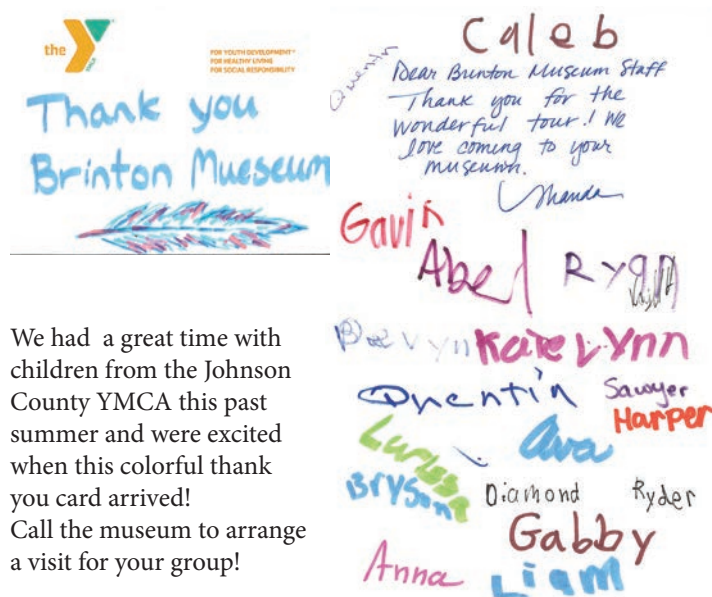 the
Y
FOR YOUTH DEVELOPMENT™
FOR HEALTHY LIVING
FOR SOCIAL RESPONSIBILITY
Thank you
Brinton Mueseum
We had a great time with
children from the Johnson
County YMCA this past
summer and were excited
when this colorful thank
you card arrived!
Call the museum to arrange
a visit for your group!
Caleb
Quentin
Dear Brinton Museum Staff
Thank you for the
wonderful tour! We
love coming to your
museum.
Gavin
Abel Ryan
Katelynn
Quentin Sawyer
Harper
Ava
Bryson Diamond Ryder
Gabby
Anna Liam